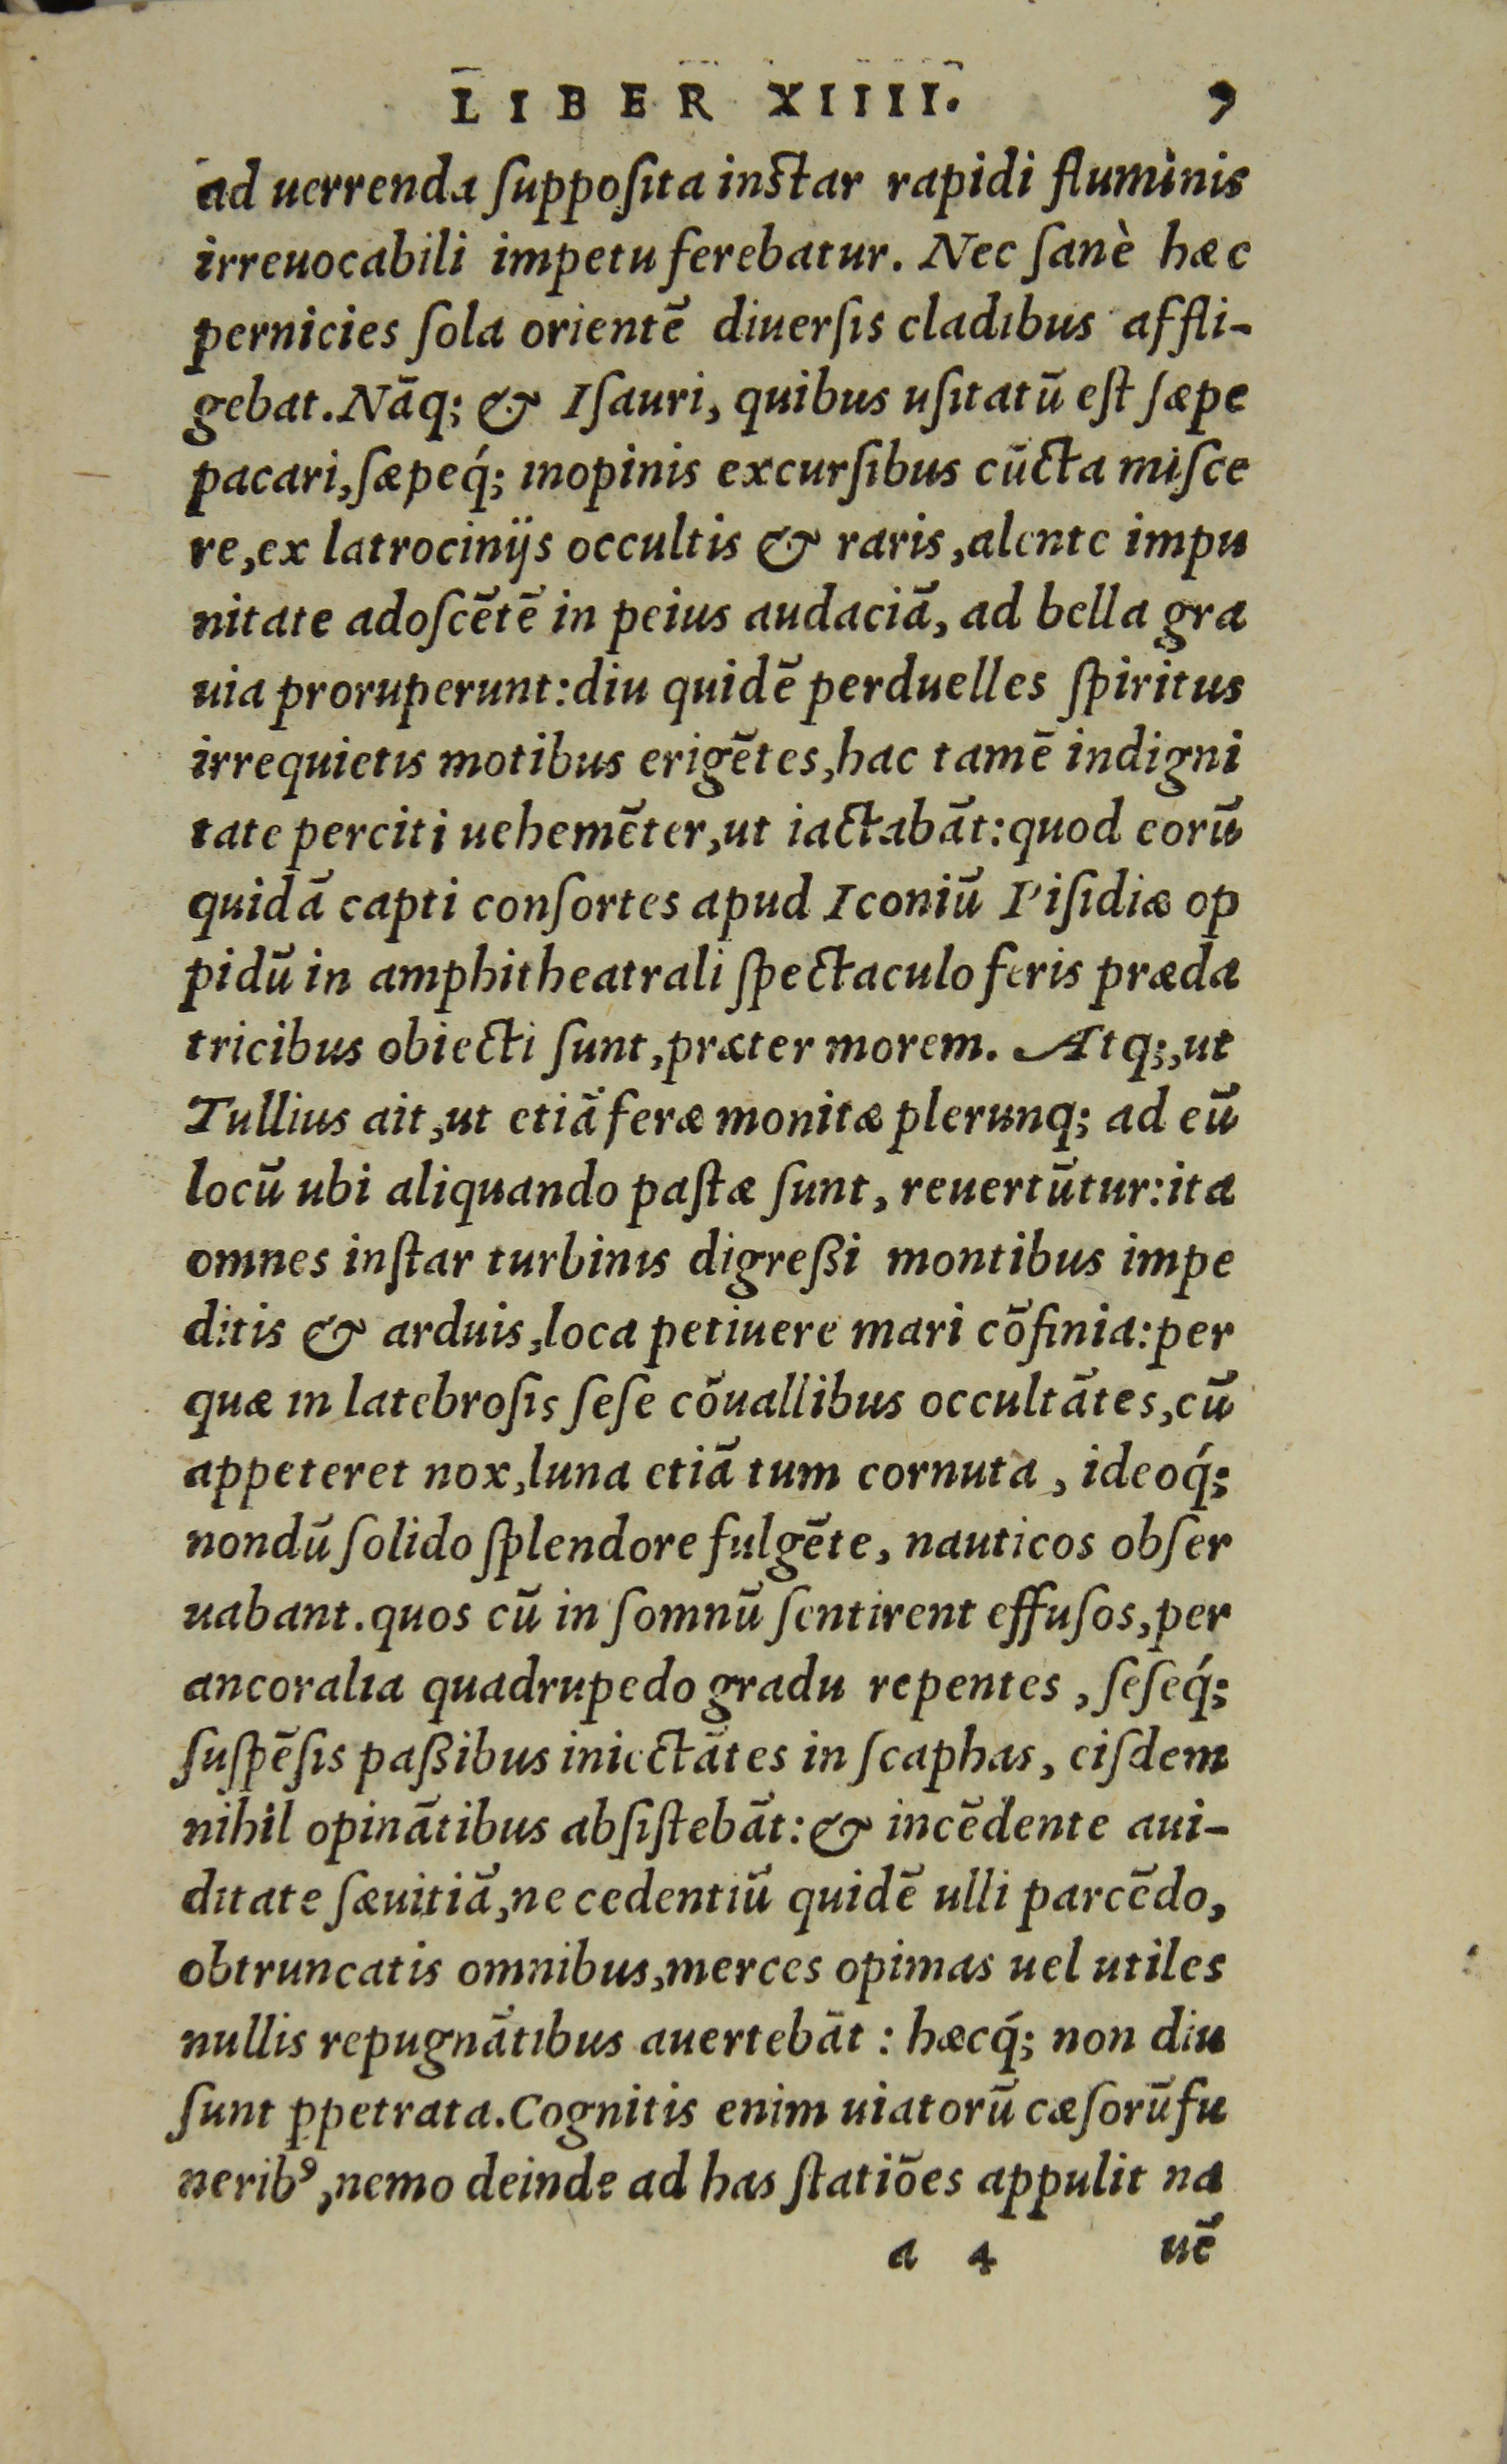 LIBER XIIII. 7
ad uerrenda ſuppoſita inſtar rapidi fluminis
irreuocabili impetu ferebatur. Nec ſanè hæc
pernicies ſola orientē diuerſis cladibus affli-
gebat. Nāq; & Iſauri, quibus uſitatū eſt ſæpe
pacari, ſæpeq́; inopinis excurſibus cūcta miſce
re, ex latrocinijs occultis & raris, alente impu
nitate adoſcētē in peius audaciā, ad bella gra
uia proruperunt: diu quidē perduelles ſpiritus
irrequietis motibus erigētes, hac tamē indigni
tate perciti uehemēter, ut iactabāt: quod eorū
quidā capti conſortes apud Iconiū Piſidiæ op
pidū in amphitheatrali ſpectaculo feris præda
tricibus obiecti ſunt, præter morem. Atq;, ut
Tullius ait, ut etiā feræ monitæ plerunq; ad eū
locū ubi aliquando paſtæ ſunt, reuertūtur: ita
omnes inſtar turbinis digreßi montibus impe
ditis & arduis, loca petiuere mari cōfinia: per
quæ in latebroſis ſeſe cōuallibus occultātes, cū
appeteret nox, luna etiā tum cornuta, ideoq́;
nondū ſolido ſplendore fulgēte, nauticos obſer
uabant. quos cū in ſomnū ſentirent effuſos, per
ancoralia quadrupedo gradu repentes, ſeſeq́;
ſuſpēſis paßibus iniectātes in ſcaphas, eiſdem
nihil opinātibus abſiſtebāt: & incēdente aui-
ditate ſæuitiā, ne cedentiū quidē ulli parcēdo,
obtruncatis omnibus, merces opimas uel utiles
nullis repugnātibus auertebāt: hæcq́; non diu
ſunt ꝑpetrata. Cognitis enim uiatorū cæſorū fu
neribꝰ, nemo deinde ad has ſtatiōes appulit na
a 4 uē